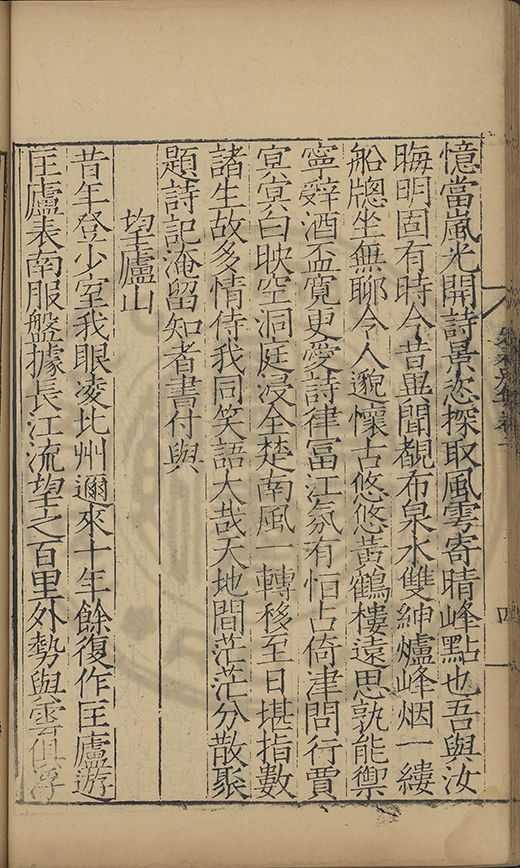 憶當嵐光開詩景恣探取風雩寄晴峰點也吾與汝
晦明固有時今昔異聞覩布泉水雙紳爐峰烟一縷
船牕坐無聊令人邈懷古悠悠黃鶴樓遠思孰能禦
寧辭酒盃寬更愛詩律冨江氛有恒占倚津問行賈
㝠㝠白映空洞庭浸全楚南風一轉移至日堪指數
諸生故多情侍我同笑語大哉天地間茫茫分散聚
題詩記淹留知者書付與
望廬山
昔年登少室我眼凌比州邇來十年餘復作匡廬遊
匡廬表南服盤據長江流望之百里外勢與雲俱浮
四